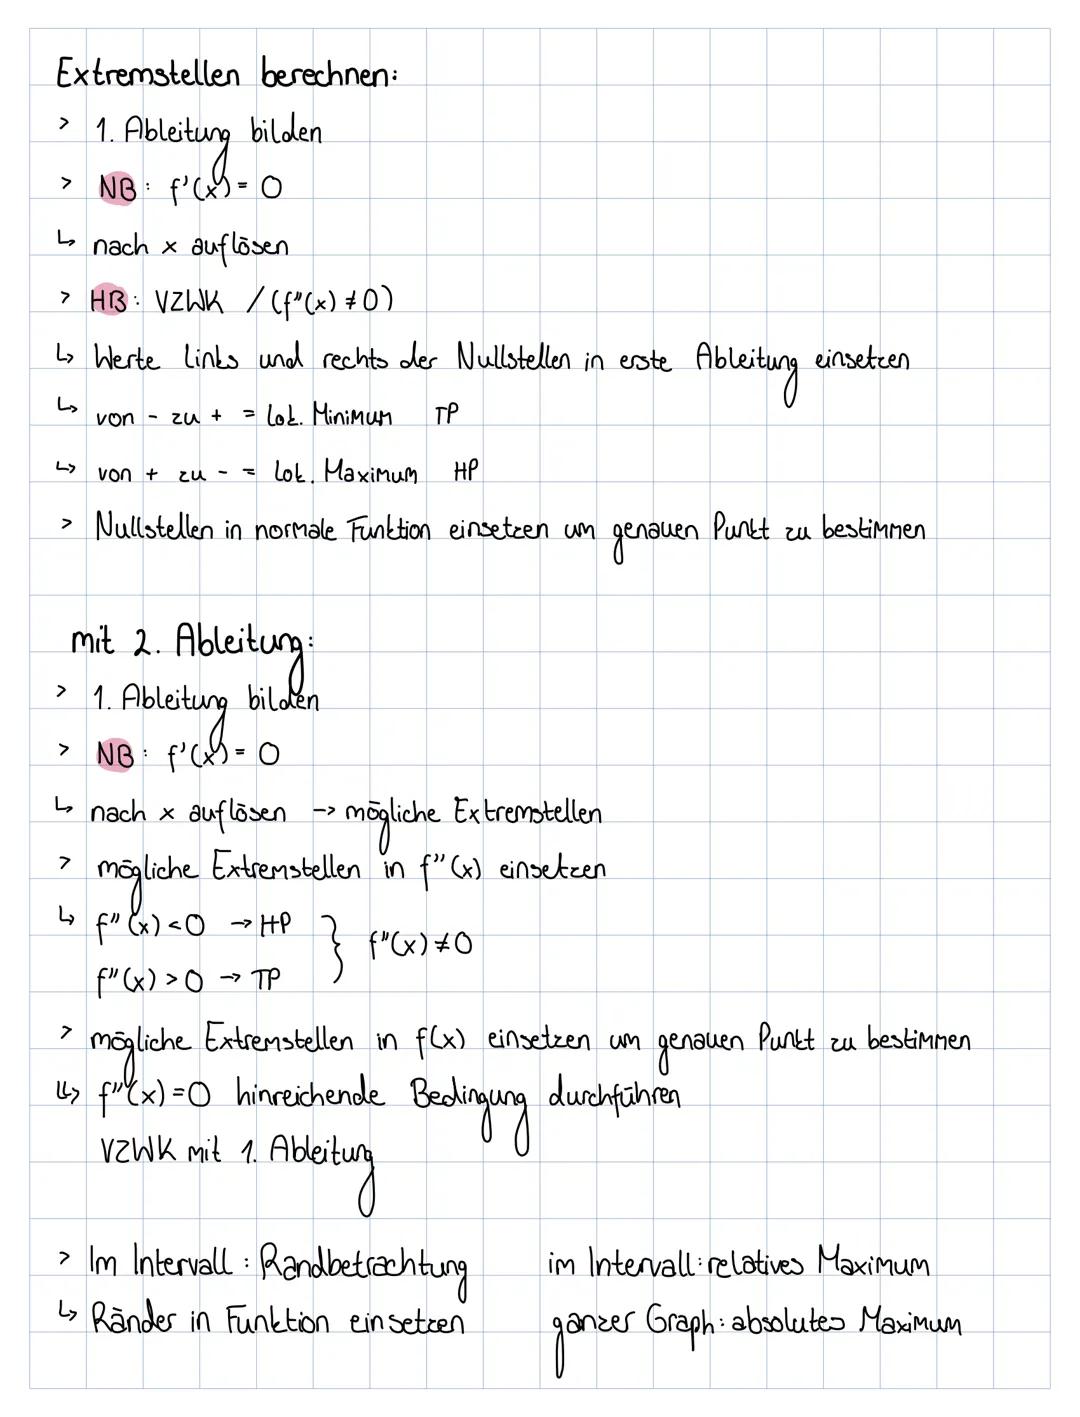 Extremstellen berechnen:
> 1. Ableitung bilden
> NB: f'(x) = 0
↳ nach x auflösen
> HB: VZWK / (f"(x) ≠ 0)
↳ Werte links und rechts der Nullstellen in erste Ableitung einsetzen
↳ von - zu + = lok. Minimum TP
↳ von + zu - = lok. Maximum HP
> Nullstellen in normale Funktion einsetzen um genauen Punkt zu bestimmen
mit 2. Ableitung:
> 1. Ableitung bilden
> NB: f'(x) = 0
↳ nach x auflösen → mögliche Extremstellen
> mögliche Extremstellen in f"(x) einsetzen
↳ f"(x) < 0 → HP } f"(x) ≠ 0
f"(x) > 0 → TP
> mögliche Extremstellen in f(x) einsetzen um genauen Punkt zu bestimmen
↳ f"(x) = 0 hinreichende Bedingung durchführen
VZWK mit 1. Ableitung
> Im Intervall: Randbetrachtung im Intervall: relatives Maximum
↳ Ränder in Funktion einsetzen ganzer Graph: absolutes Maximum